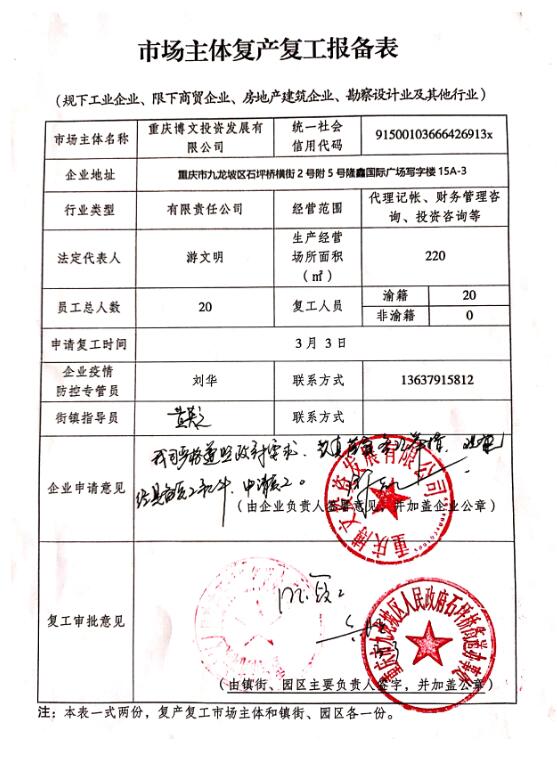 市场主体复产复工报备表
（规下工业企业、限下商贸企业、房地产建筑企业、勘察设计业及其他行业）
市场主体名称 重庆博文投资发展有限公司 统一社会信用代码 91500103666426913x
企业地址 重庆市九龙坡区石坪桥横街2号附5号隆鑫国际广场写字楼15A-3
行业类型 有限责任公司 经营范围 代理记帐、财务管理咨询、投资咨询等
法定代表人 游文明 生产经营场所面积（㎡） 220
员工总人数 20 复工人员 渝籍 20
非渝籍 0
申请复工时间 3月3日
企业疫情防控专管员 刘华 联系方式 13637915812
街镇指导员 联系方式
企业申请意见
我司严格遵照政府要求
申请复工。
（由企业负责人签署意见，并加盖企业公章）
重庆博文投资发展有限公司
复工审批意见
重庆市九龙坡区人民政府石坪桥街道办事处
（由镇街、园区主要负责人签字，并加盖公章）
注：本表一式两份，复产复工市场主体和镇街、园区各一份。